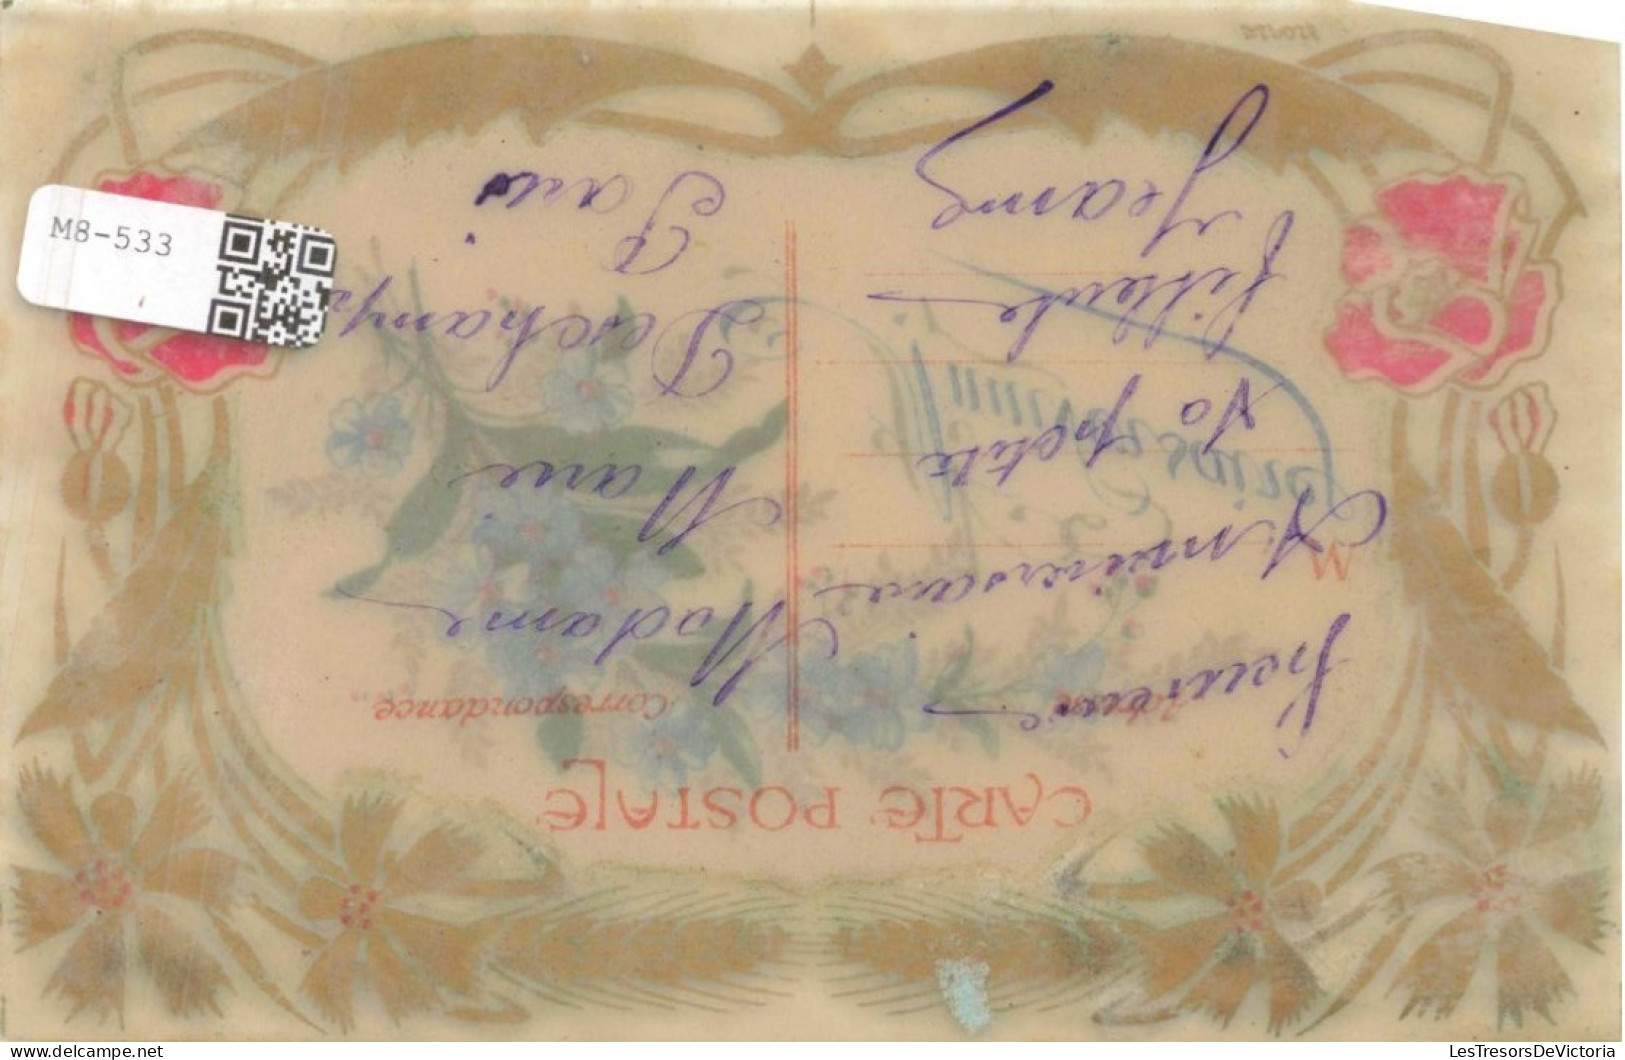 CARTE POSTALE
Correspondance
Heureux
Anniversaire
Ta petite
filleule
Jeanne
Madame
Marie
Deschamps
Paris
M
M8-533
LesTresorsDeVictoria
© delcampe.net